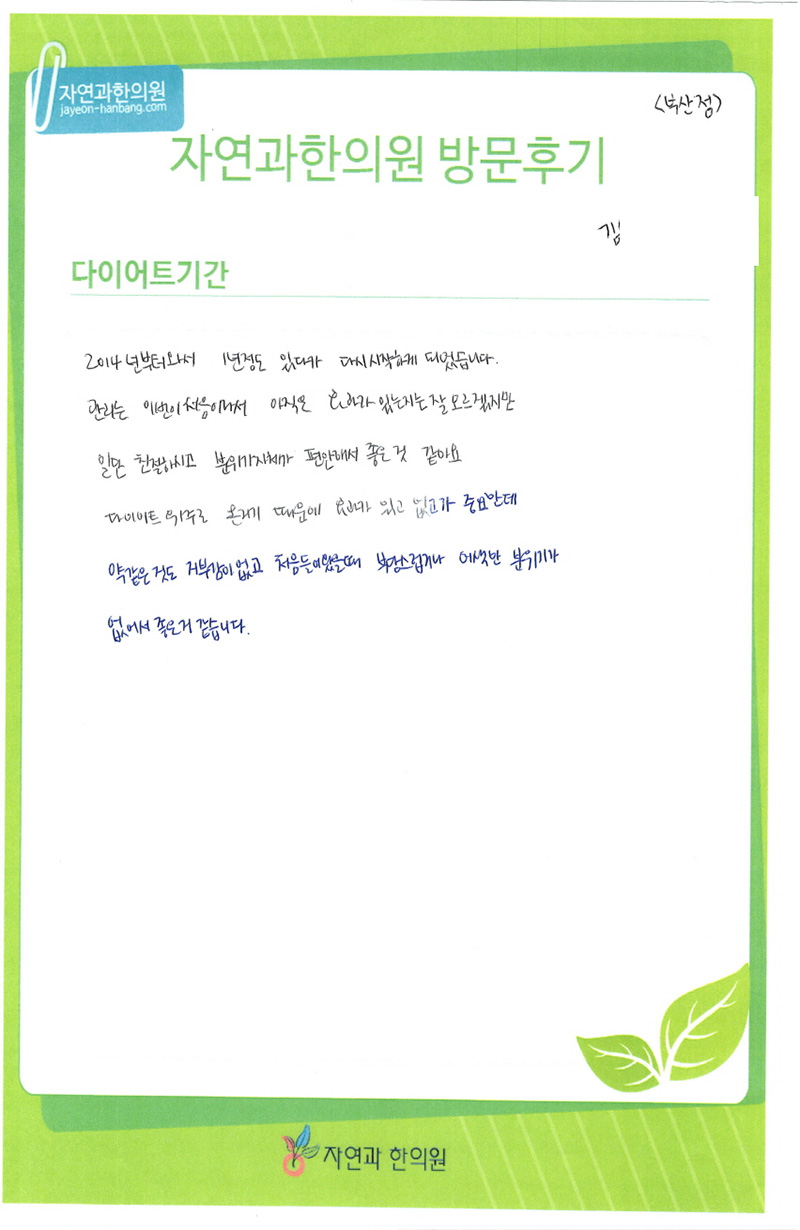 자연과한의원
jayeon-hanbang.com
<부산점>
자연과한의원 방문후기
김
다이어트기간
2014년부터와서 1년정도 있다가 다시시작하게 되었습니다.
관리는 이번이처음이라서 아직은 효과가 있는지는 잘모르겠지만
일단 친절하시고 분위기자체가 편안해서 좋은것 같아요
다이어트 위주로 온거기 때문에 효과가 있고 없고가 중요한데
약같은것도 거부감이없고 처음들어왔을때 부담스럽거나 어색한 분위기가
없어서 좋은거 같습니다.
자연과 한의원